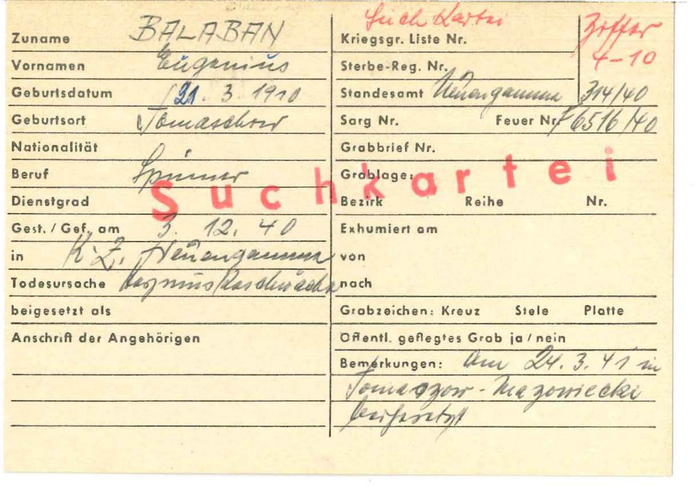 Such Kartei
Ziffer
4-10
Zuname BALABAN
Vornamen Eugenius
Geburtsdatum 21. 3. 1910
Geburtsort Tomaschow
Nationalität
Beruf Spinner
Dienstgrad
Gest./Gef. am 3. 12. 40
in K.Z. Neuengamme
Todesursache
beigesetzt als
Anschrift der Angehörigen
Suchkartei
Kriegsgr. Liste Nr.
Sterbe-Reg. Nr.
Standesamt Neuengamme 314/40
Sarg Nr. Feuer Nr. 6516/40
Grabbrief Nr.
Grablage:
Bezirk Reihe Nr.
Exhumiert am
von
nach
Grabzeichen: Kreuz Stele Platte
Öffentl. geflegtes Grab ja/nein
Bemerkungen: Am 24. 3. 41 in
Tomaszow-Mazowiecki
beigesetzt